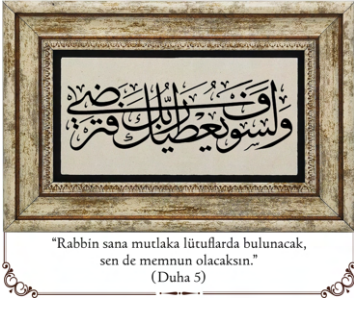 ولسوف يعطيك ربك فترضى
“Rabbin sana mutlaka lütuflarda bulunacak,
sen de memnun olacaksın.”
(Duha 5)